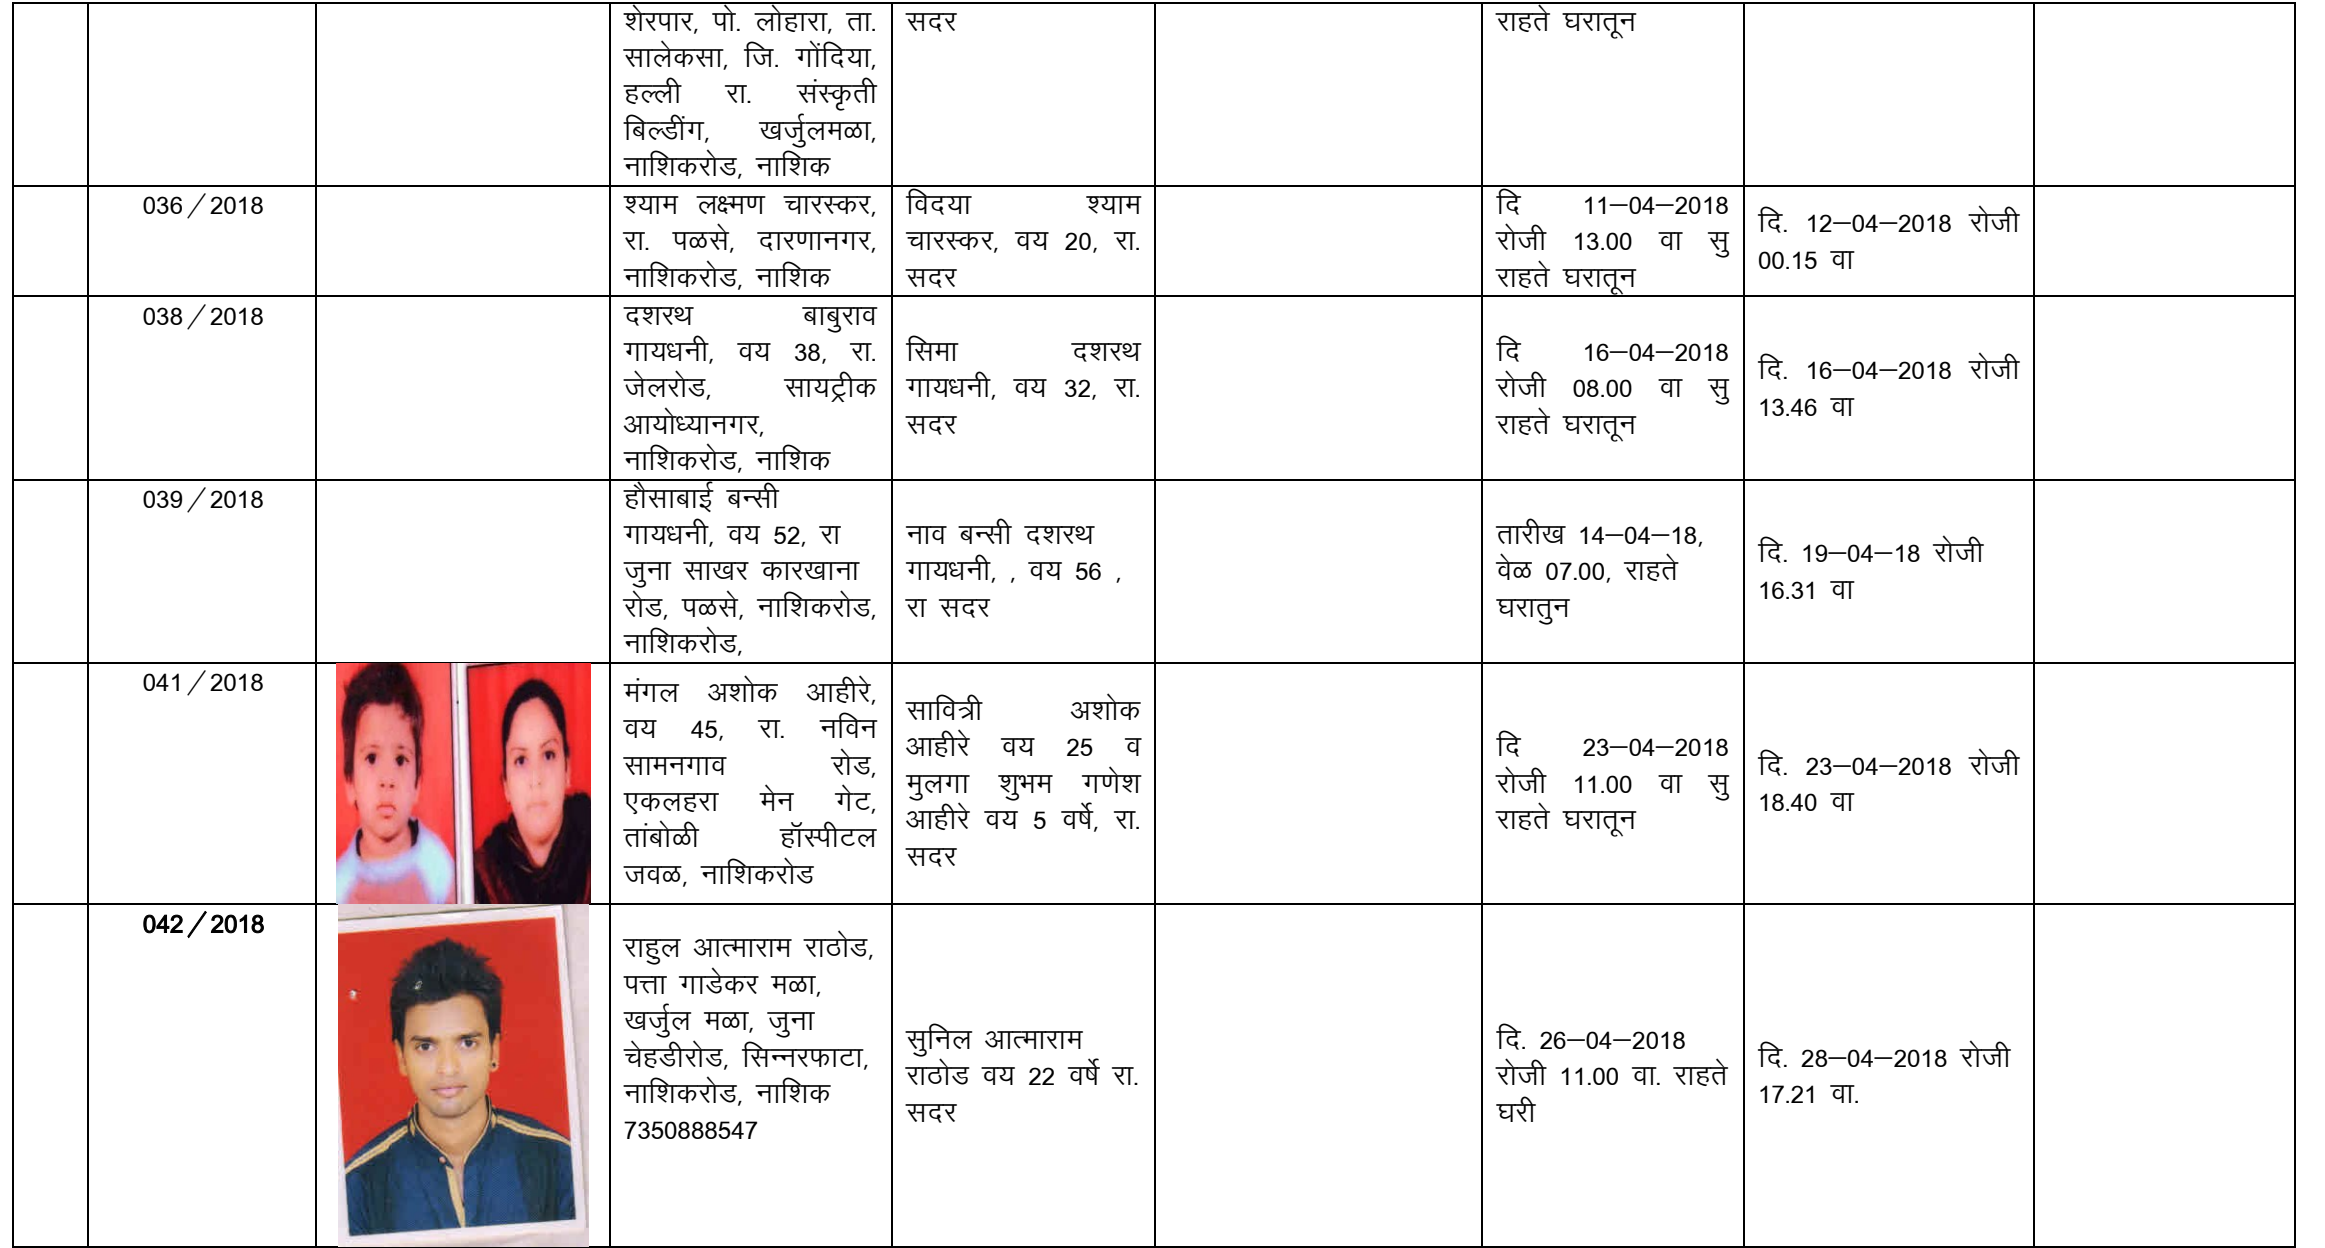 शेरपार, पो. लोहारा, ता.
सालेकसा, जि. गोंदिया,
हल्ली रा. संस्कृती
बिल्डींग, खर्जुलमळा,
नाशिकरोड, नाशिक
सदर
राहते घरातून
036/2018
श्याम लक्ष्मण चारस्कर,
रा. पळसे, दारणानगर,
नाशिकरोड, नाशिक
विदया श्याम
चारस्कर, वय 20, रा.
सदर
दि 11–04–2018
रोजी 13.00 वा सु
राहते घरातून
दि. 12–04–2018 रोजी
00.15 वा
038/2018
दशरथ बाबुराव
गायधनी, वय 38, रा.
जेलरोड, सायट्रीक
आयोध्यानगर,
नाशिकरोड, नाशिक
सिमा दशरथ
गायधनी, वय 32, रा.
सदर
दि 16–04–2018
रोजी 08.00 वा सु
राहते घरातून
दि. 16–04–2018 रोजी
13.46 वा
039/2018
हौसाबाई बन्सी
गायधनी, वय 52, रा
जुना साखर कारखाना
रोड, पळसे, नाशिकरोड,
नाशिकरोड,
नाव बन्सी दशरथ
गायधनी, , वय 56 ,
रा सदर
तारीख 14–04–18,
वेळ 07.00, राहते
घरातुन
दि. 19–04–18 रोजी
16.31 वा
041/2018
मंगल अशोक आहीरे,
वय 45, रा. नविन
सामनगाव रोड,
एकलहरा मेन गेट,
तांबोळी हॉस्पीटल
जवळ, नाशिकरोड
सावित्री अशोक
आहीरे वय 25 व
मुलगा शुभम गणेश
आहीरे वय 5 वर्षे, रा.
सदर
दि 23–04–2018
रोजी 11.00 वा सु
राहते घरातून
दि. 23–04–2018 रोजी
18.40 वा
042/2018
राहुल आत्माराम राठोड,
पत्ता गाडेकर मळा,
खर्जुल मळा, जुना
चेहडीरोड, सिन्नरफाटा,
नाशिकरोड, नाशिक
7350888547
सुनिल आत्माराम
राठोड वय 22 वर्षे रा.
सदर
दि. 26–04–2018
रोजी 11.00 वा. राहते
घरी
दि. 28–04–2018 रोजी
17.21 वा.